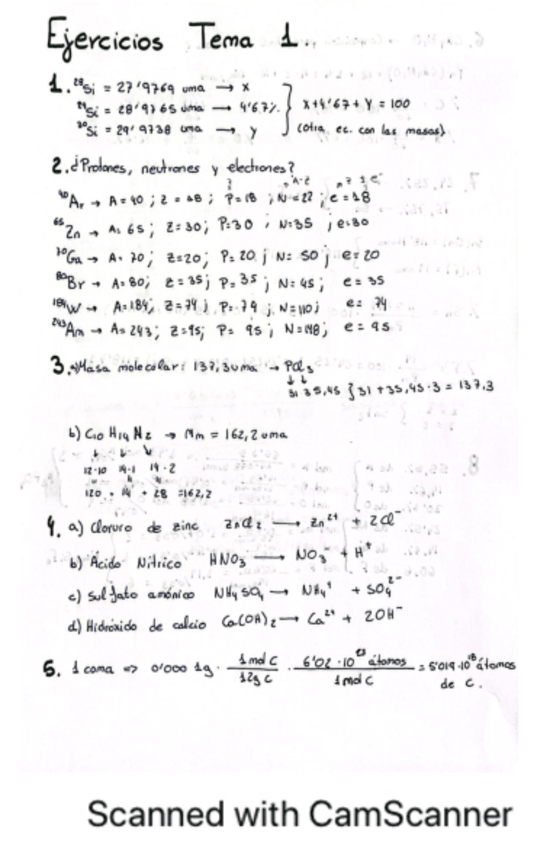 Ejercicios Tema 1.
1. ²⁸Si = 27'9769 uma → x
²⁹Si = 28'9765 uma → 4'67% } x+4'67+Y = 100
³⁰Si = 29'9738 uma → y (otra ec. con las masas)
2. ¿Protones, neutrones y electrones?
⁴⁰Ar → A=40; Z=18; P=18; N=22; e=18
⁶⁵Zn → A=65; Z=30; P=30; N=35; e=30
⁷⁰Ga → A=70; Z=20; P=20; N=50; e=20
⁸⁰Br → A=80; Z=35; P=35; N=45; e=35
¹⁸⁴W → A=184; Z=74; P=74; N=110; e=74
²⁴³Am → A=243; Z=95; P=95; N=148; e=95
3. a) Masa molecular: 137,3uma → PCl₃
31 35,45 } 31 + 35,45·3 = 137,3
b) C₁₀ H₁₄ N₂ → Mm = 162,2 uma
12·10 14·1 14·2
120 + 14 + 28 = 162,2
4. a) Cloruro de zinc ZnCl₂ → Zn²⁺ + 2Cl⁻
b) Ácido Nítrico HNO₃ → NO₃⁻ + H⁺
c) Sulfato amónico NH₄SO₄ → NH₄⁺ + SO₄²⁻
d) Hidróxido de calcio Ca(OH)₂ → Ca²⁺ + 2OH⁻
5. 1 coma => 0'000 1g · 1 mol C / 12g C · 6'02·10²³ átomos / 1 mol C = 5'019·10¹⁸ átomos
de C.
Scanned with CamScanner